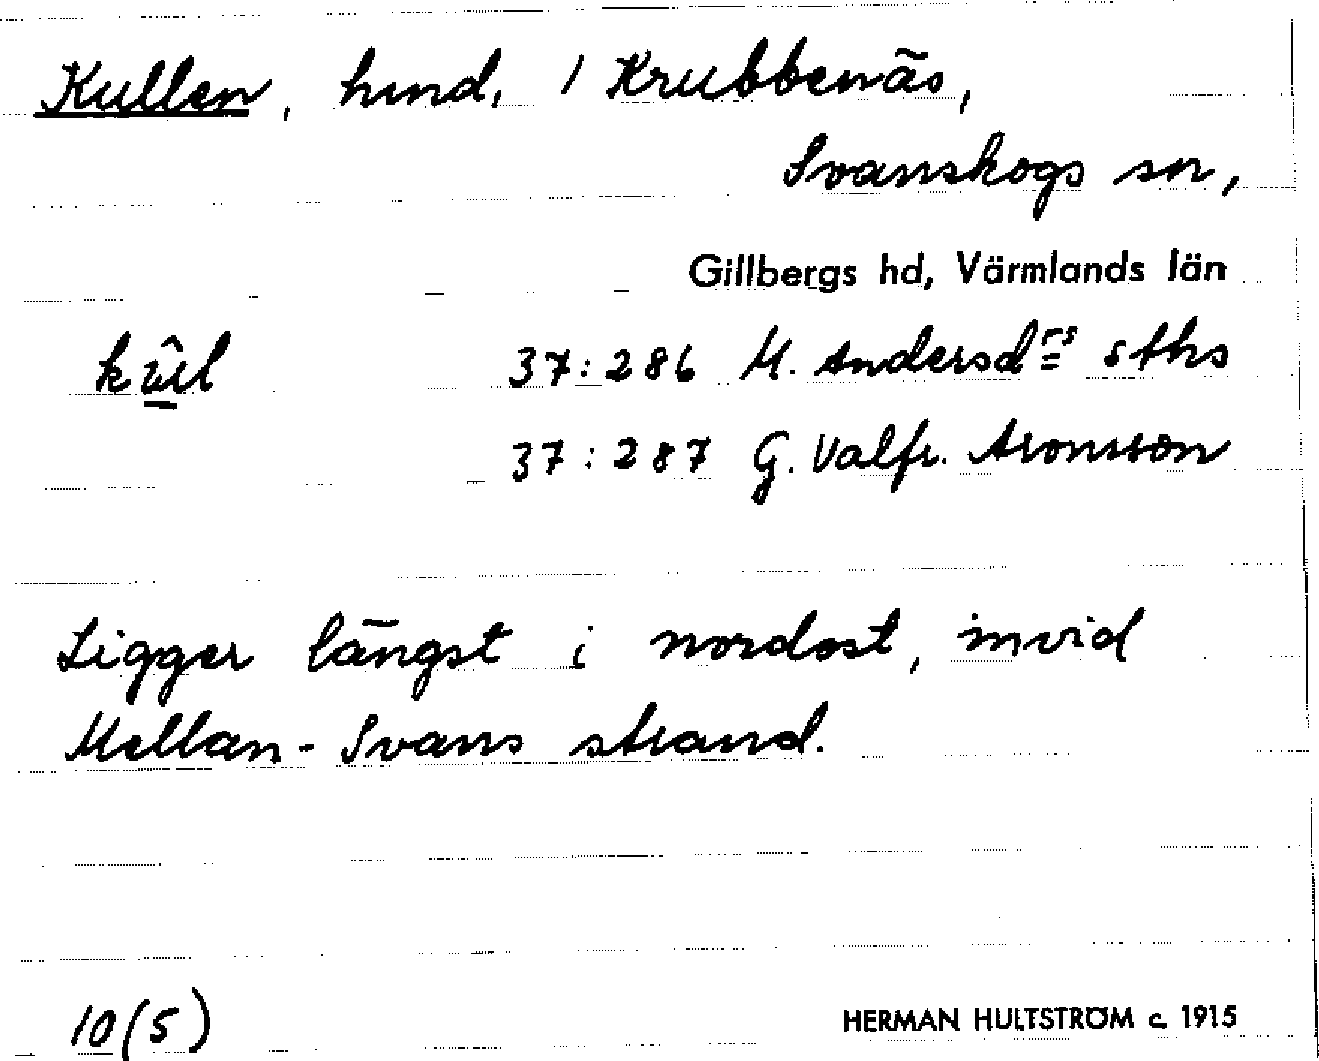 Kullen, hmd, 1 Krubbenäs,
Svanskogs sn,
Gillbergs hd, Värmlands län
37:286 M. Andersdrs sths
37:287 G. Valfr. Aronsson
Ligger längst i nordost, invid
Mellan-Svans strand.
10(5)
HERMAN HULTSTRÖM c. 1915